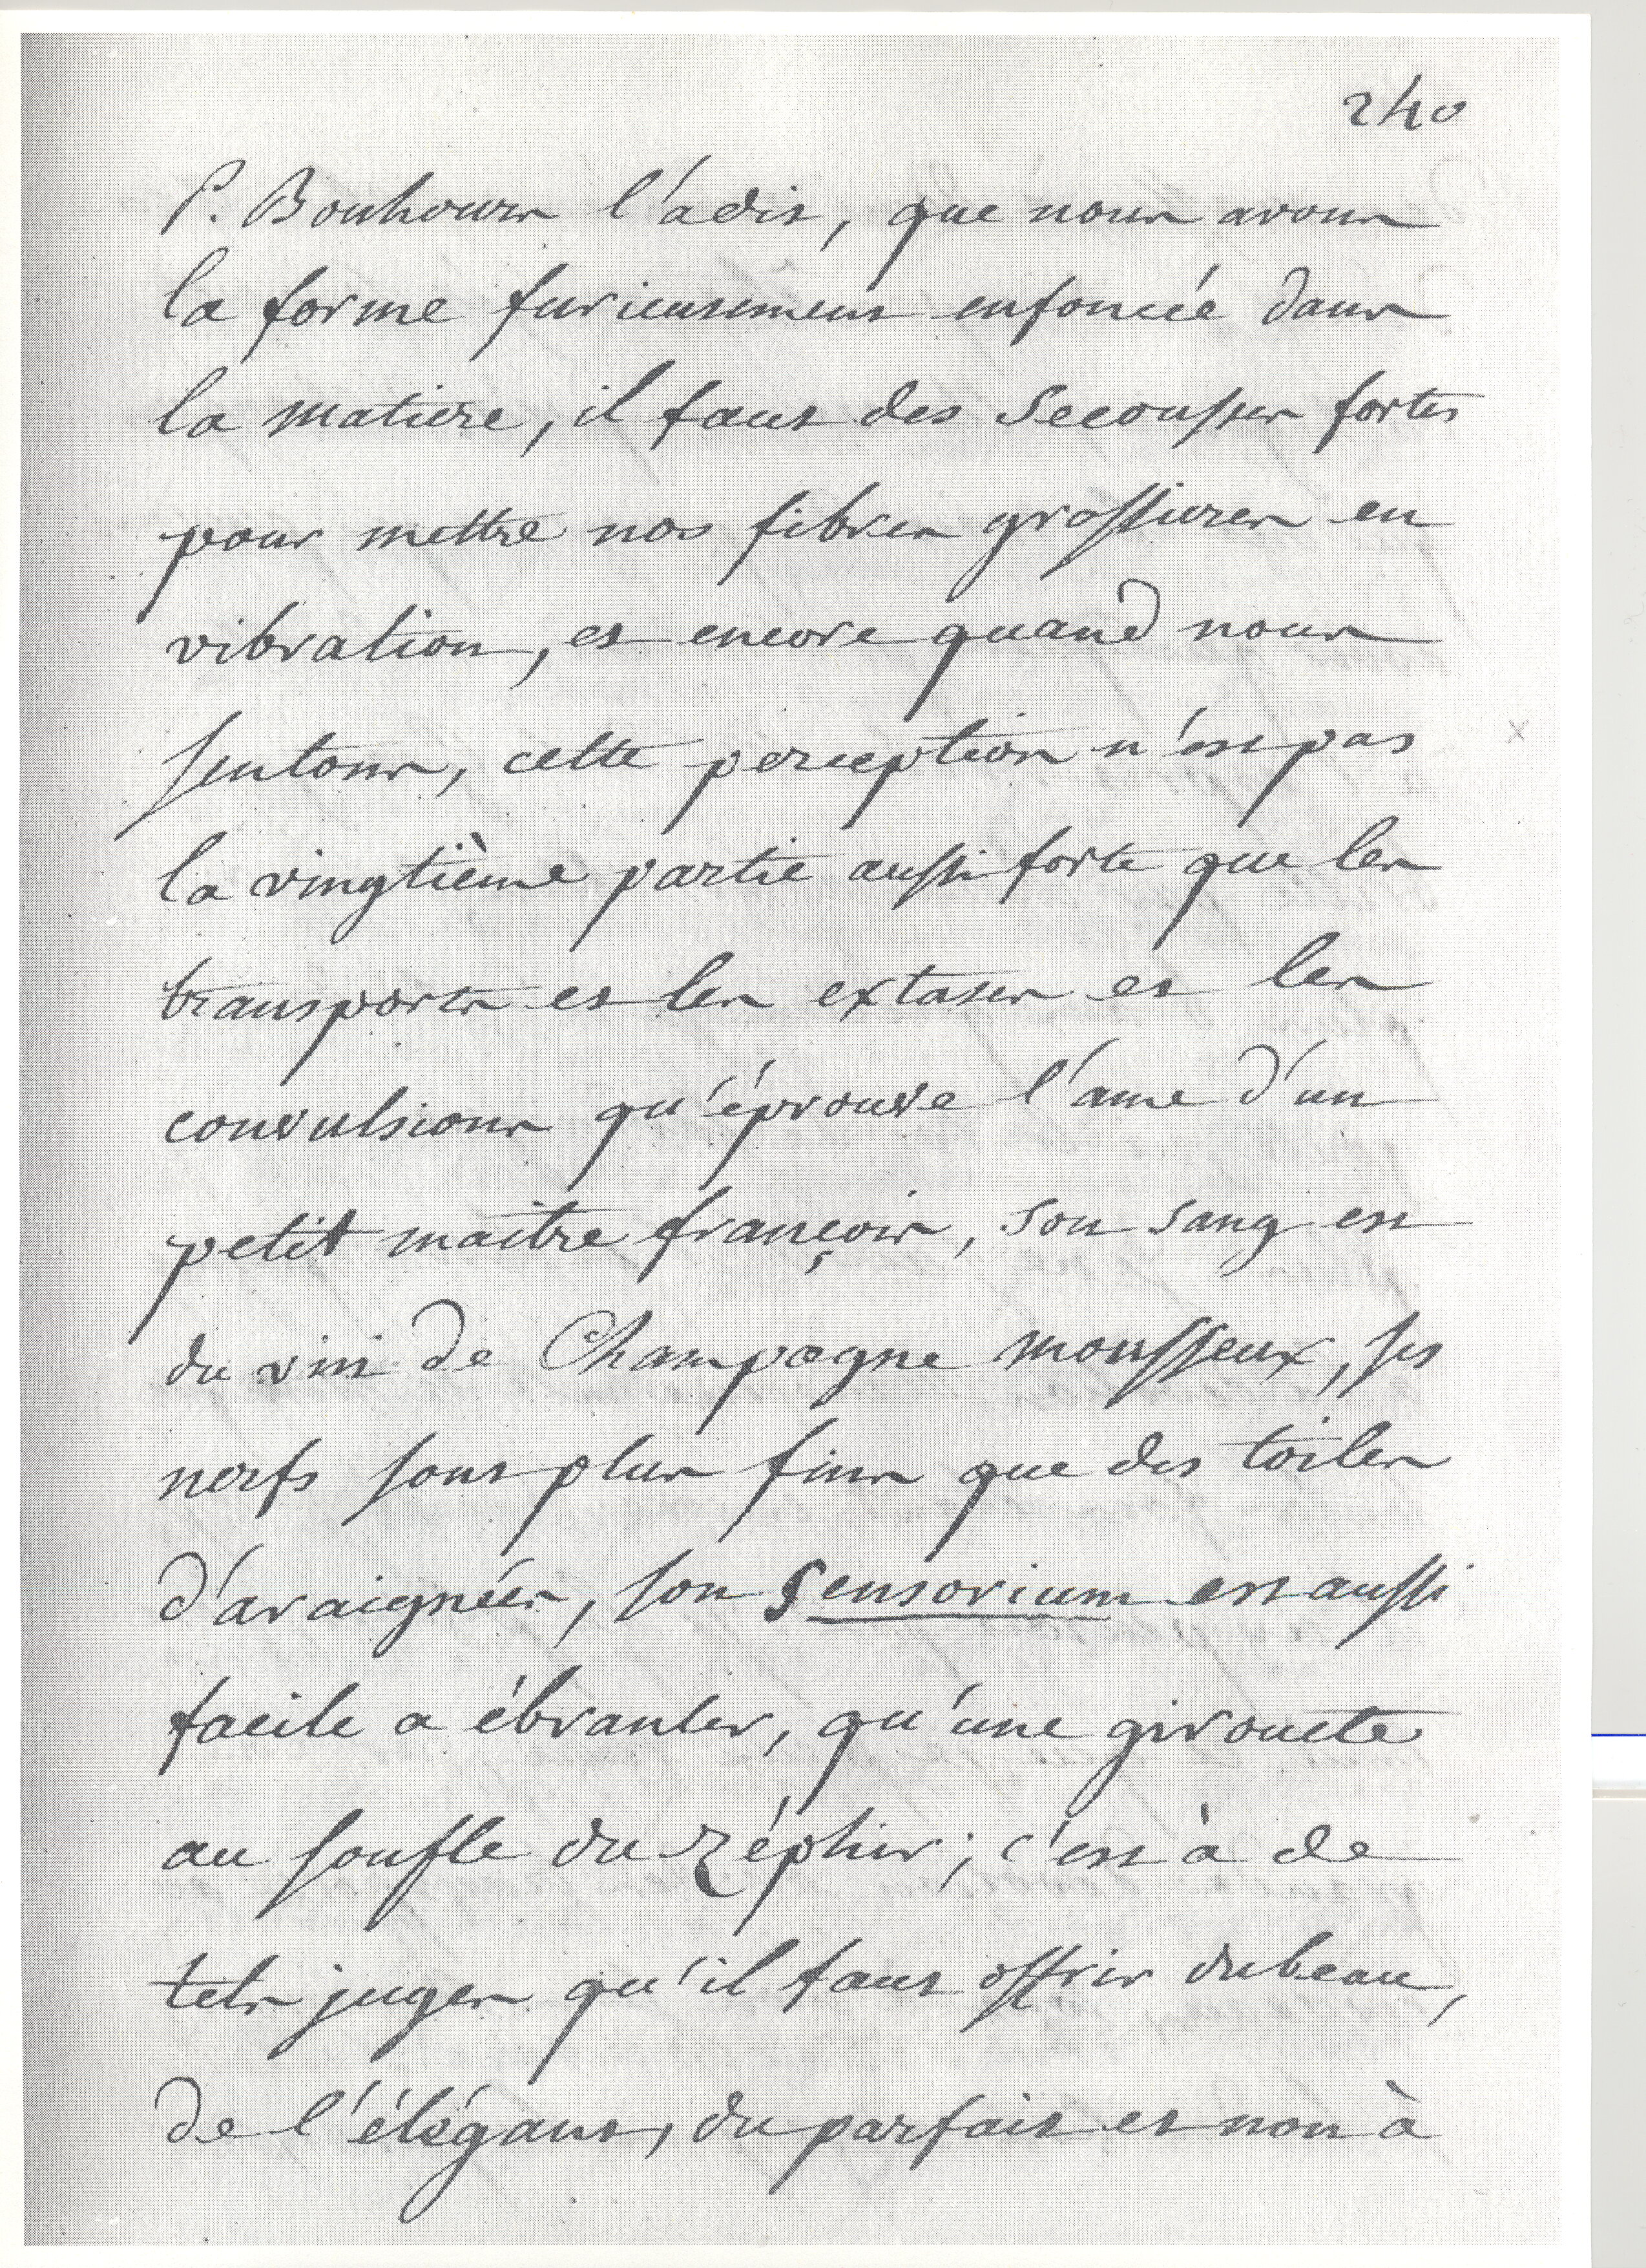 240
P. Bouhours l'a dit, que nous avons
la forme furieusement enfoncée dans
la matiere, il faut des Secousses fortes
pour mettre nos fibres grossieres en
vibration, et encore quand nous
sentons, cette perception n'est pas
la vingtième partie aussi forte que les
transports et les extases et les
convulsions qu'éprouve l'ame d'un
petit maitre françois, son sang est
du vin de Champagne mousseux, ses
nerfs sont plus fins que des toiles
d'araignées, son Sensorium est aussi
facile a ébranler, qu'une girouete
au soufle du Zéphir; c'est à de
tels juges qu'il faut offrir du beau,
de l'élégant, du parfait et non à